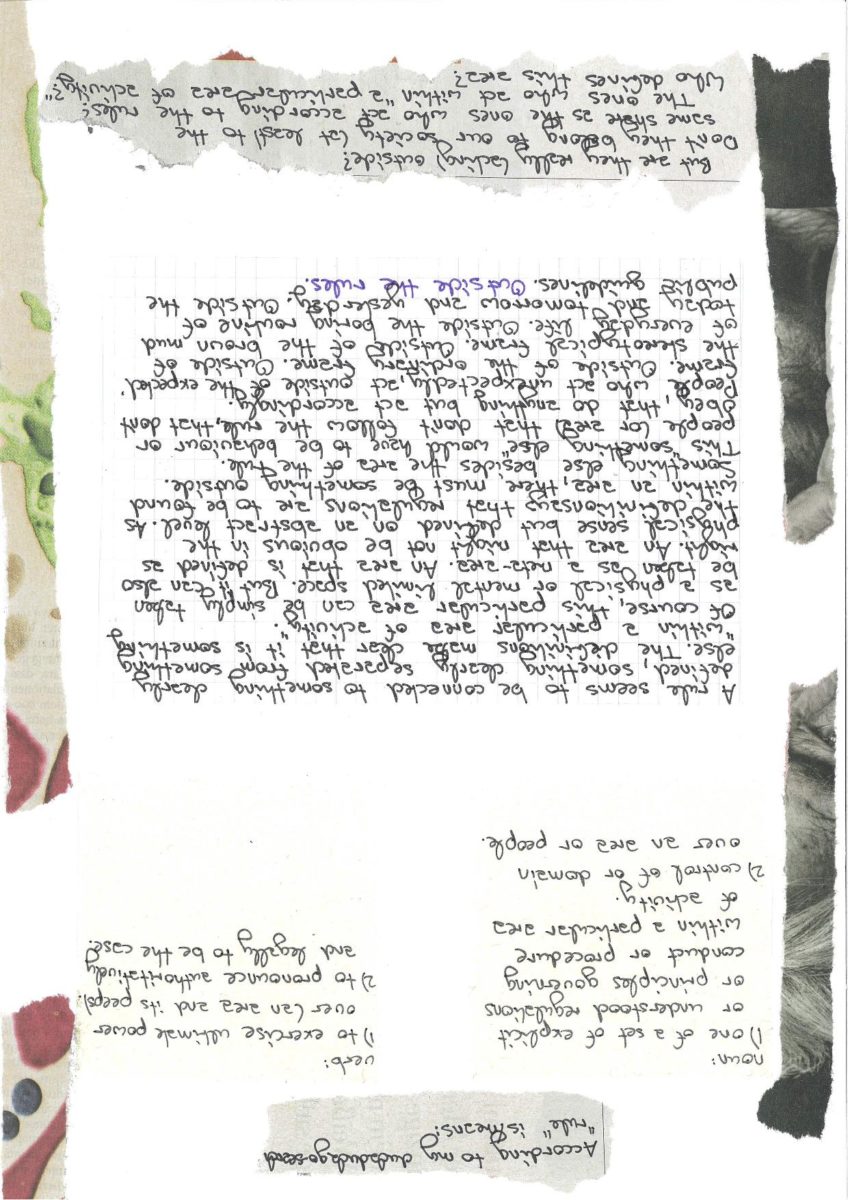 According to my duckduckgo search
"rule" is/means:
noun:
1) one of a set of explicit
or understood regulations
or principles governing
conduct or procedure
within a particular area
of activity.
2) control of or domain
over an area or people.
verb:
1) to exercise ultimate power
over (an area and its peeps).
2) to pronounce authoritatively
and legally to be the case.
A rule seems to be connected to something clearly
defined, something clearly separated from something
else. The definitions make clear that it is something
"within a particular area of activity".
Of course, this particular area can be simply taken
as a physical or mental limited space. But it can also
be taken as a meta-area. An area that is defined as
might. An area that might not be obvious in the
physical sense but defined on an abstract level. As
the definition says that regulations are to be found
within an area, there must be something outside.
Something else besides the area of the rule.
This "something else" would have to be behaviour or
people (or area) that don't follow the rule, that dont
obey, that do anything but act accordingly.
People who act unexpectedly, act outside of the expected
frame. Outside of the ordinary frame. Outside of
the stereotypical frame. Outside of the brown mud
of everyday life. Outside the boring routine of
today and tomorrow and yesterday. Outside the
public guidelines. Outside the rules.
But are they really (acting) outside?
Don't they belong to our society (at least) to the
same share as the ones who act according to the rules?
The ones who act "within a particular area of activity"?
Who defines this area?